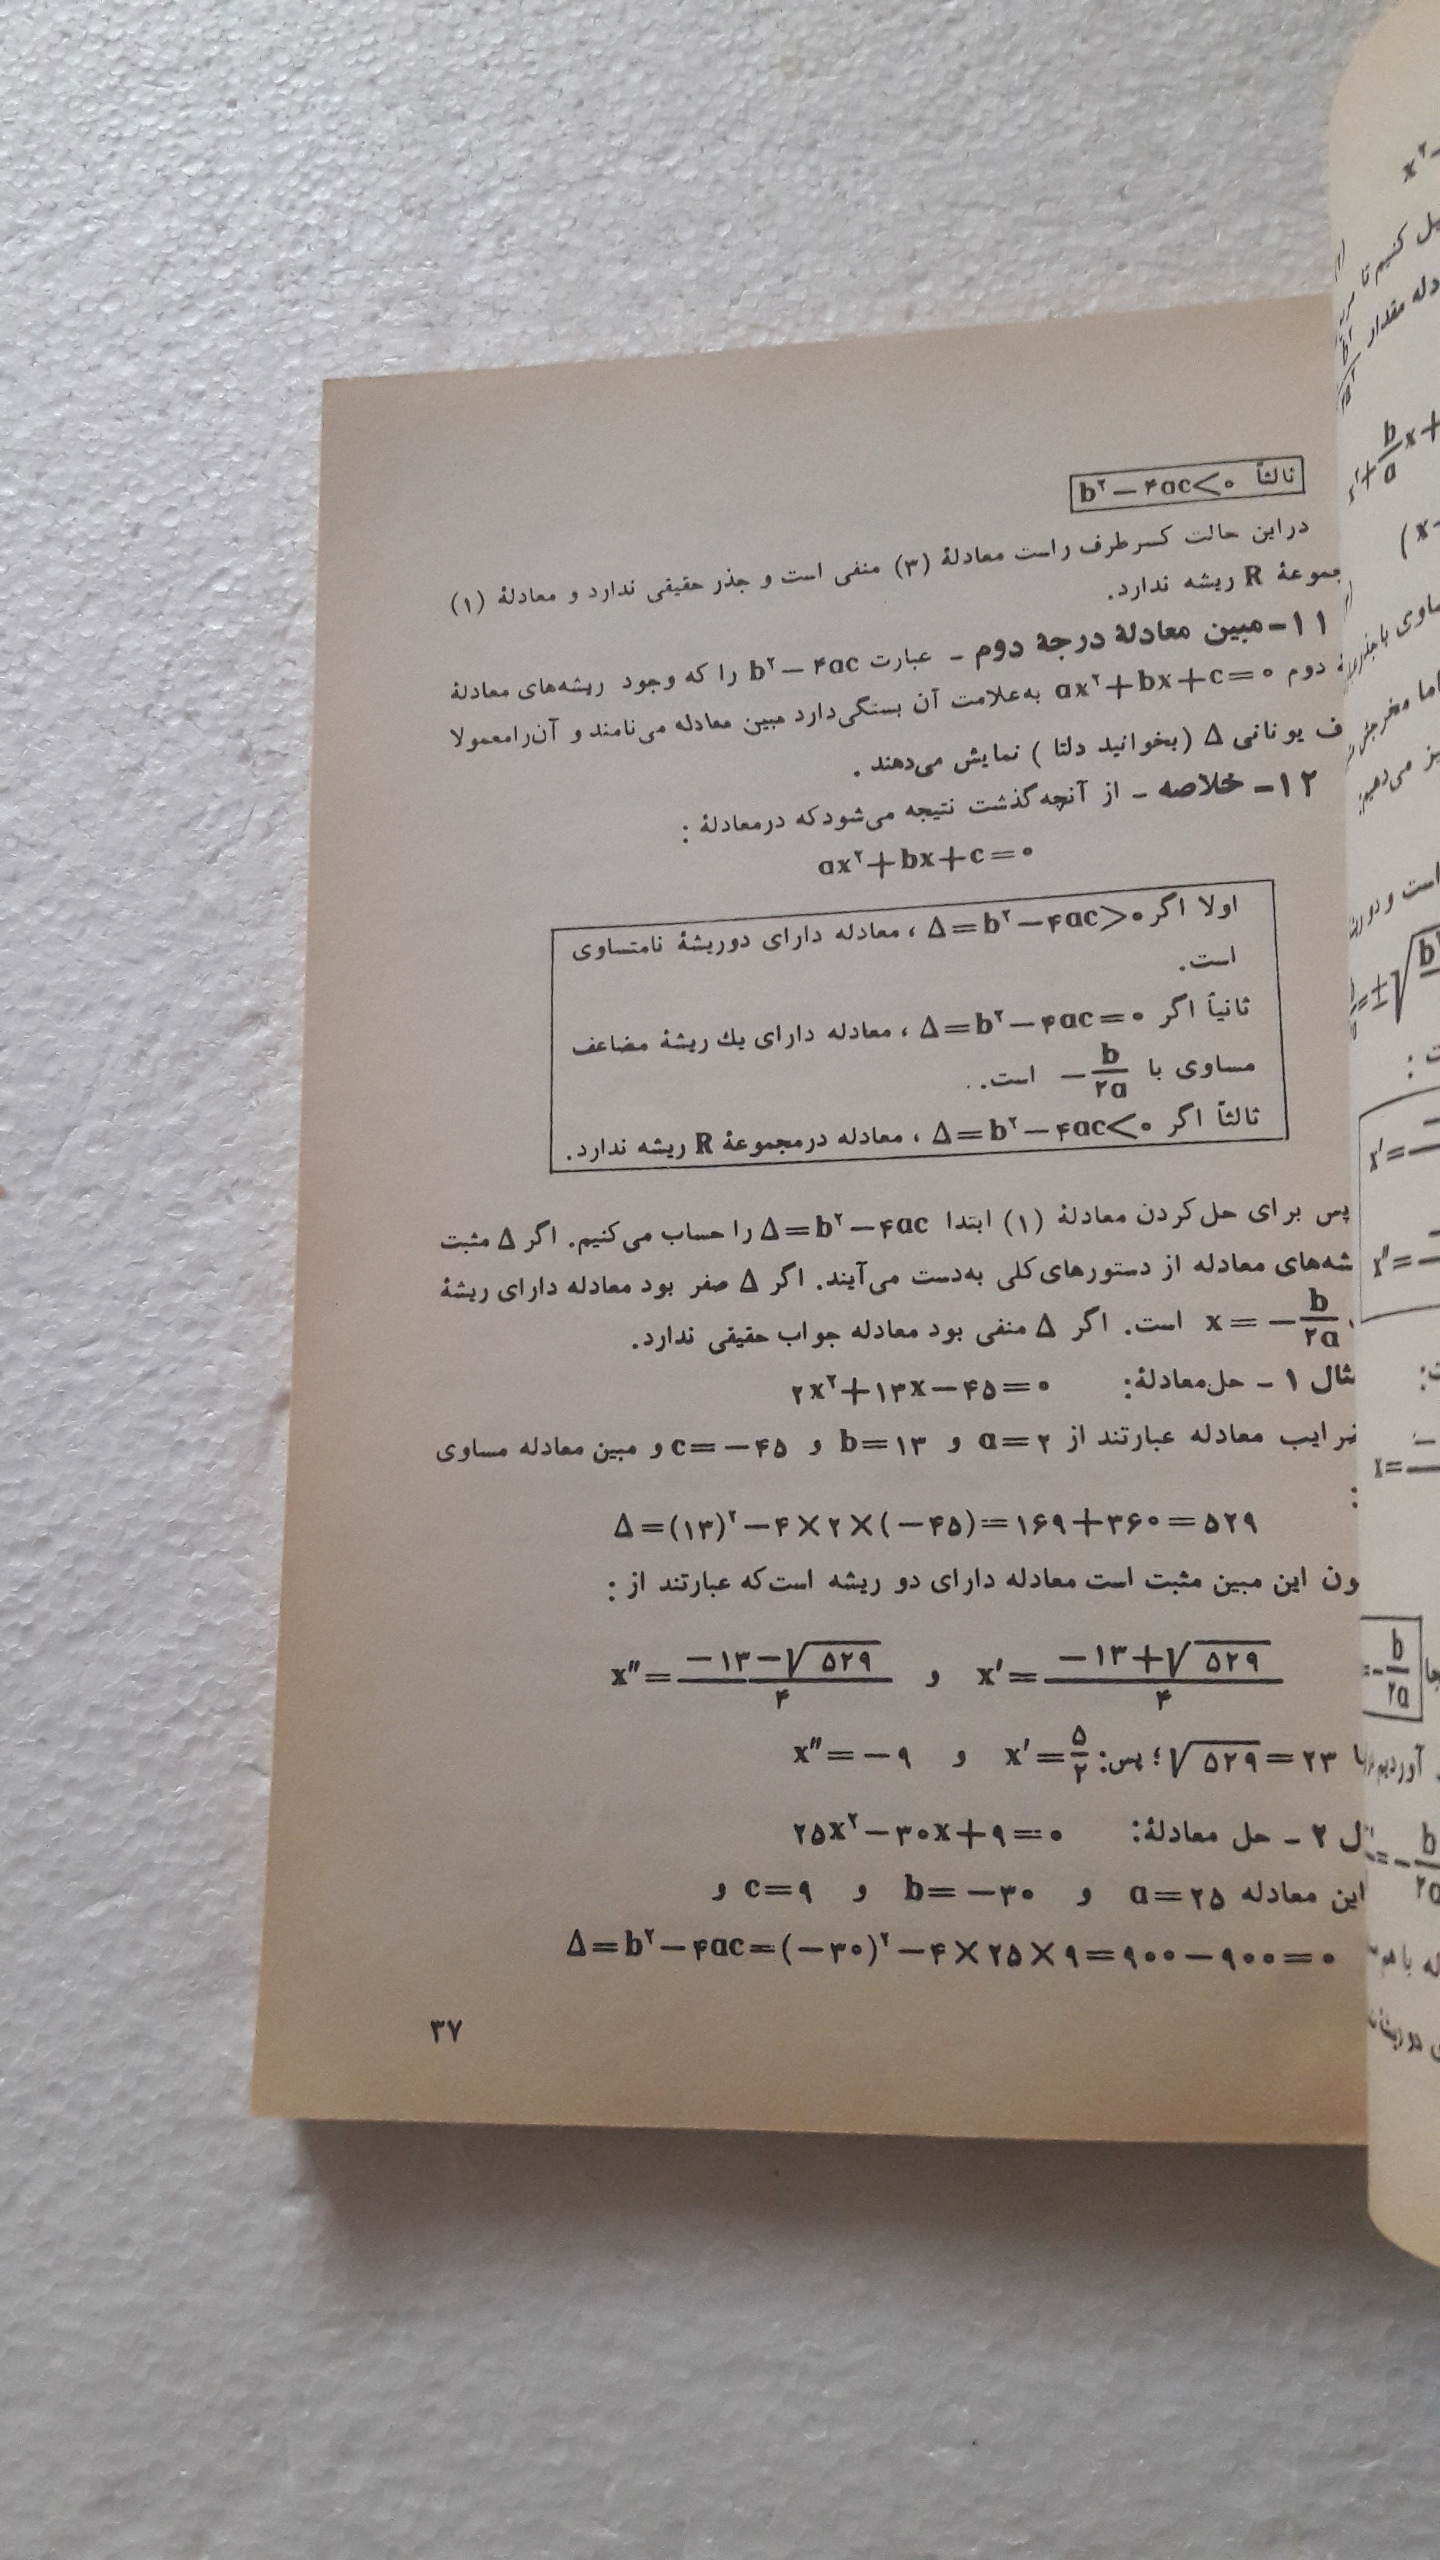 ثالثاً b۲−۴ac<۰
دراین حالت کسرطرف راست معادلهٔ (۳) منفی است و جذر حقیقی ندارد و معادلهٔ (۱)
جموعهٔ R ریشه ندارد.
۱۱ـ مبین معادلهٔ درجهٔ دوم ـ عبارت b۲−۴ac را که وجود ریشه‌های معادلهٔ
دوم ax۲+bx+c=۰ به‌علامت آن بستگی‌دارد مبین معادله می‌نامند و آن‌رامعمولا
ف یونانی Δ (بخوانید دلتا) نمایش می‌دهند.
۱۲ـ خلاصه ـ از آنچه گذشت نتیجه می‌شودکه درمعادلهٔ :
ax۲+bx+c=۰
اولا اگر Δ=b۲−۴ac>۰ ، معادله دارای دوریشهٔ نامتساوی
است.
ثانیاً اگر Δ=b۲−۴ac=۰ ، معادله دارای یك ریشهٔ مضاعف
مساوی با −b/۲a است.
ثالثاً اگر Δ=b۲−۴ac<۰ ، معادله درمجموعهٔ R ریشه ندارد.
پس برای حل‌کردن معادلهٔ (۱) ابتدا Δ=b۲−۴ac را حساب می‌کنیم. اگر Δ مثبت
شه‌های معادله از دستورهای‌کلی به‌دست می‌آیند. اگر Δ صفر بود معادله دارای ریشهٔ
x=−b/۲a است. اگر Δ منفی بود معادله جواب حقیقی ندارد.
ثال ۱ ـ حل‌معادلهٔ: ۲x۲+۱۳x−۴۵=۰
ضرایب معادله عبارتند از a=۲ و b=۱۳ و c=−۴۵ و مبین معادله مساوی
:
Δ=(۱۳)۲−۴×۲×(−۴۵)=۱۶۹+۳۶۰=۵۲۹
ون این مبین مثبت است معادله دارای دو ریشه است‌که عبارتند از :
x′=(−۱۳+√۵۲۹)/۴ و x″=(−۱۳−√۵۲۹)/۴
√۵۲۹=۲۳ ؛ پس: x′=۵/۲ و x″=−۹
ل ۲ ـ حل معادلهٔ: ۲۵x۲−۳۰x+۹=۰
این معادله a=۲۵ و b=−۳۰ و c=۹ و
Δ=b۲−۴ac=(−۳۰)۲−۴×۲۵×۹=۹۰۰−۹۰۰=۰
۳۷